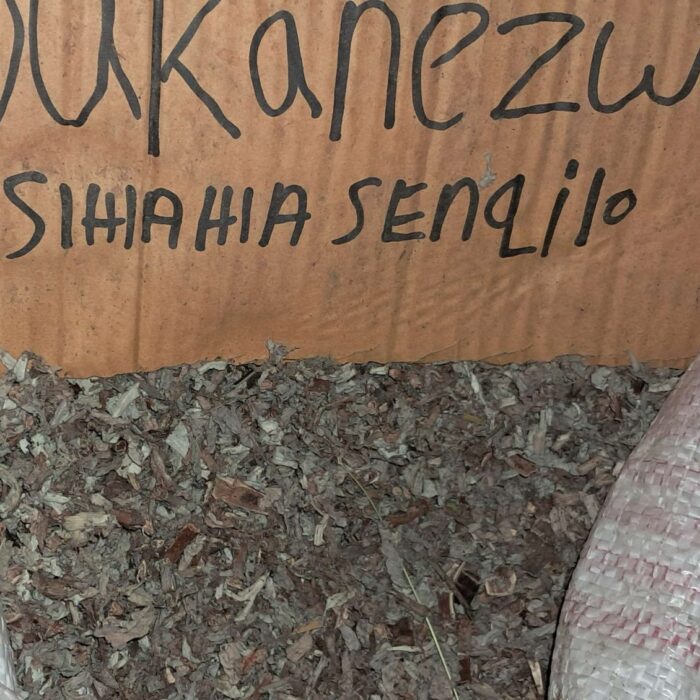 uKanezw
SIHlAHlA SEnqilo